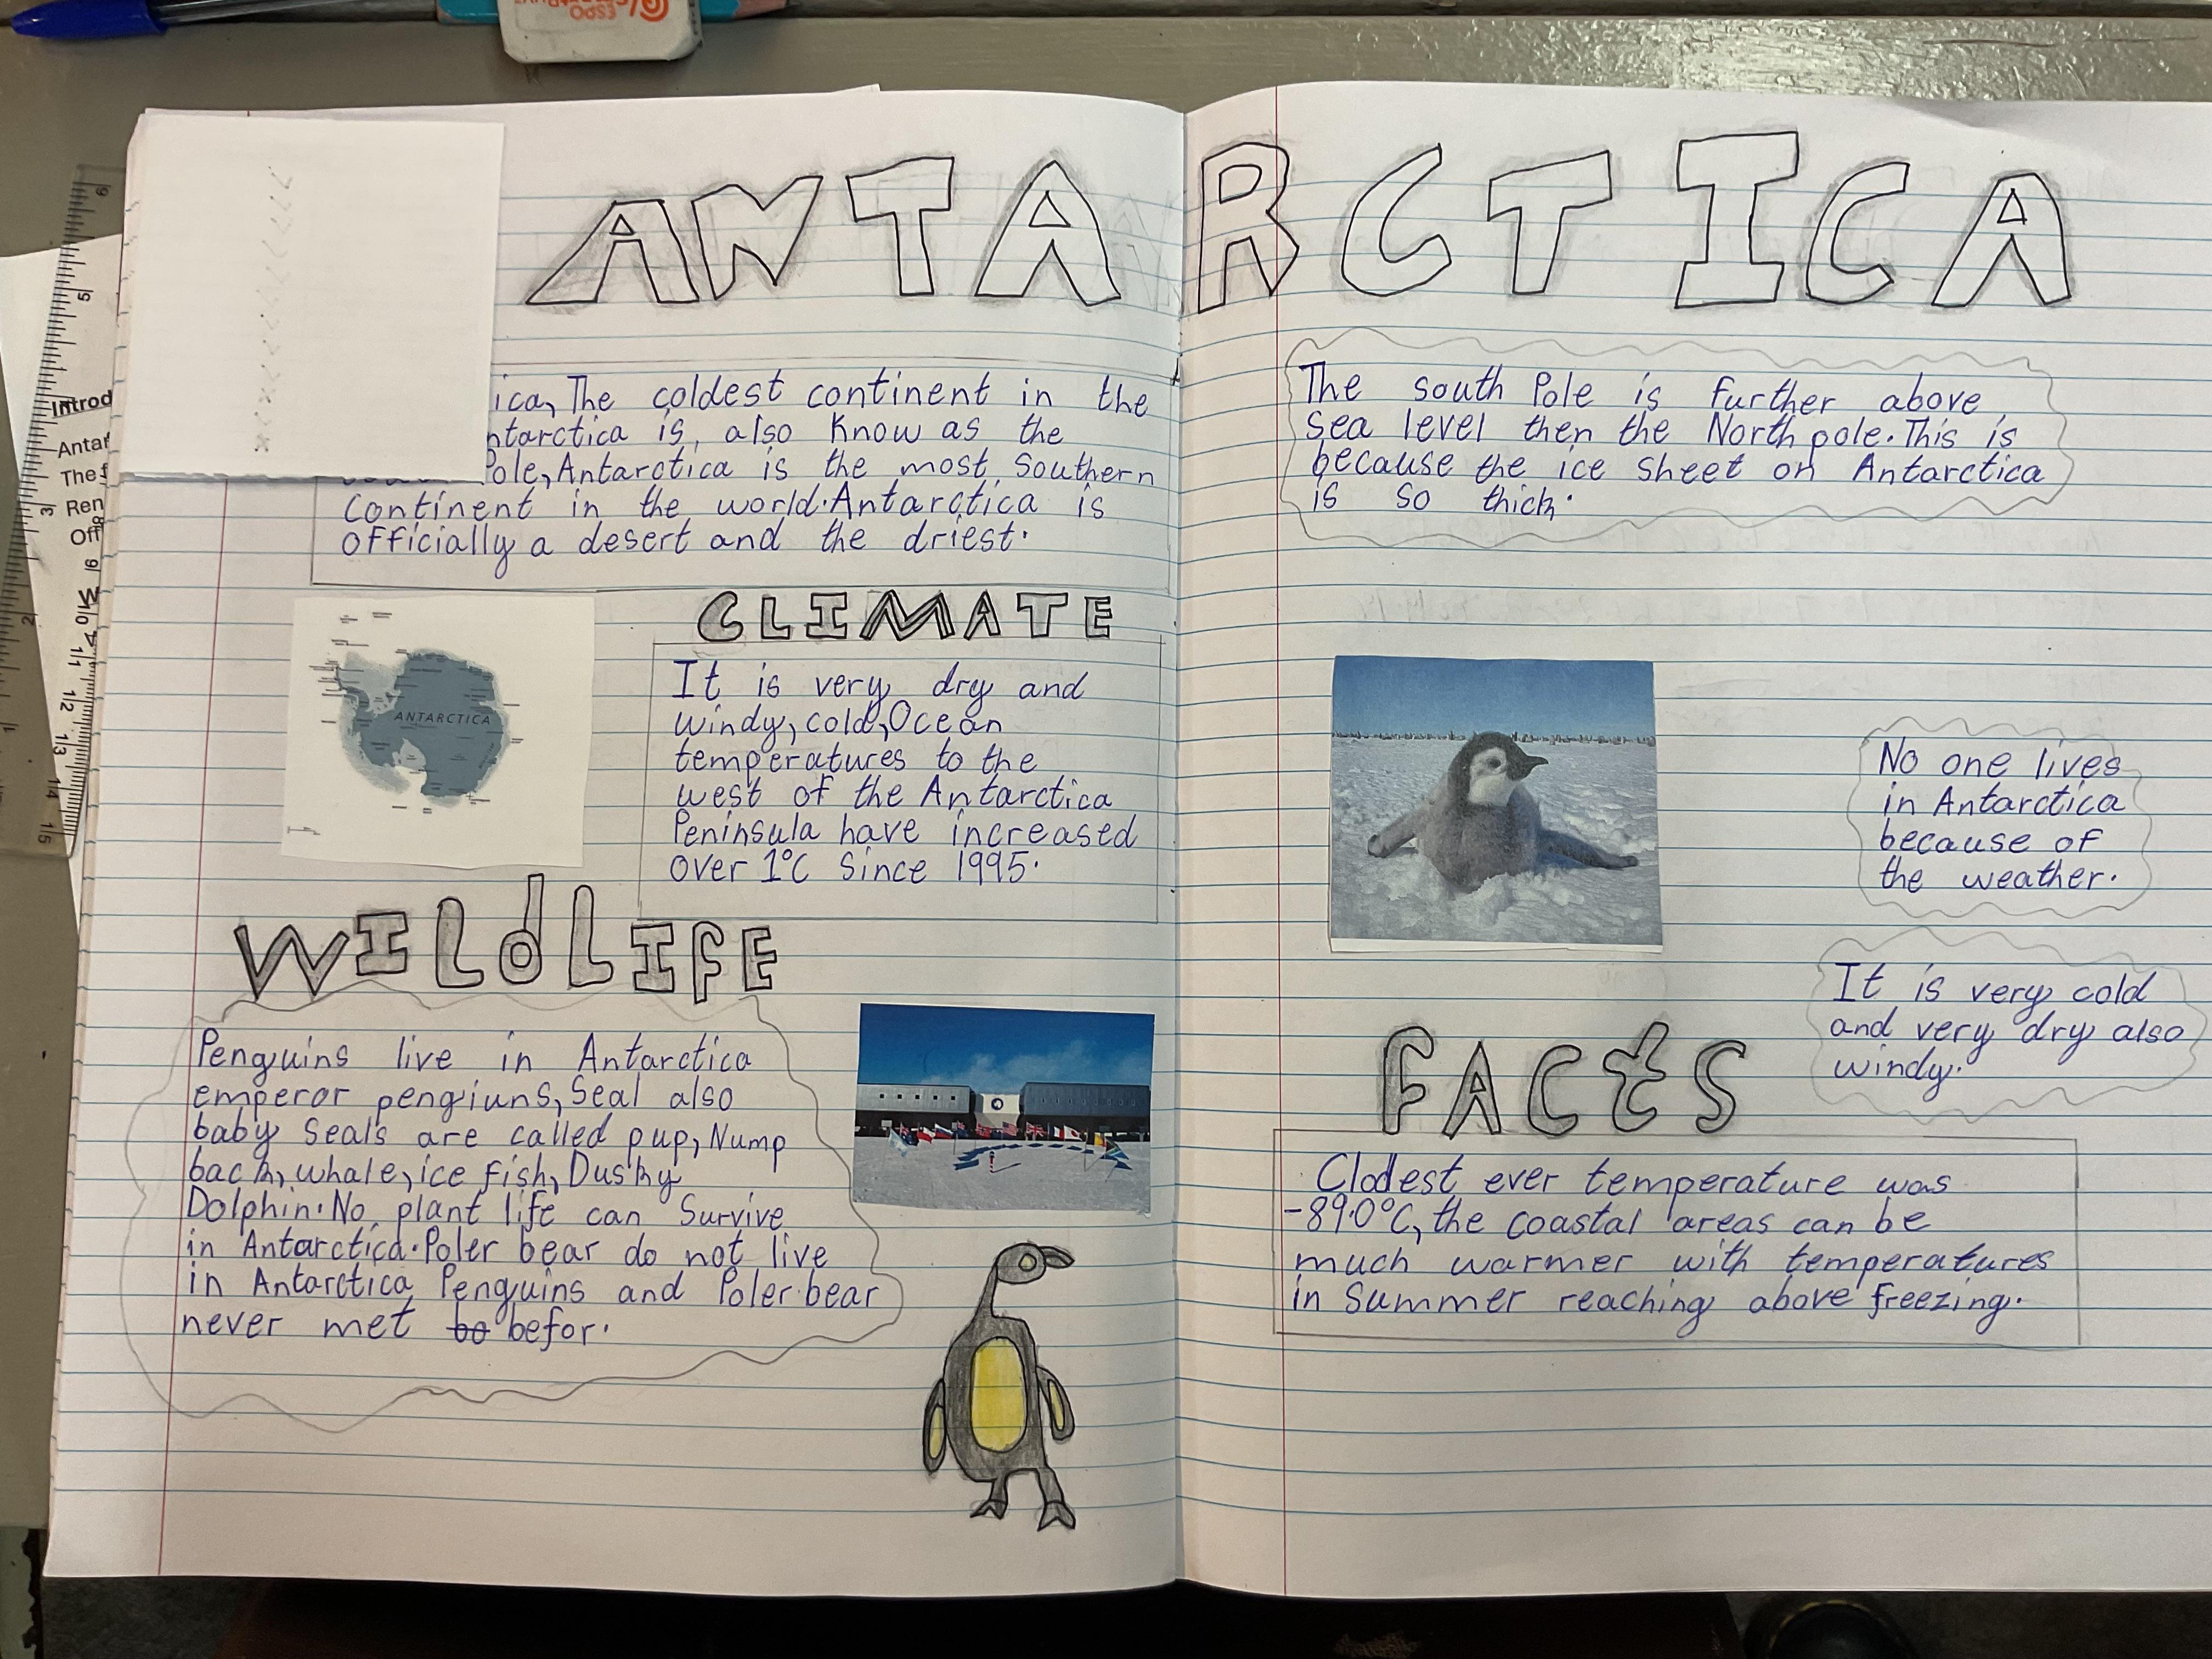 ESPO
ANTARCTICA
ica, The coldest continent in the
ntarctica is, also Know as the
Pole, Antarctica is the most Southern
Continent in the world. Antarctica is
Officially a desert and the driest.
Introd
Antar
The f
Ren
Off
W
ANTARCTICA
CLIMATE
It is very dry and
windy, cold, Ocean
temperatures to the
west of the Antarctica
Peninsula have increased
over 1°C Since 1995.
WILdLIFE
Penguins live in Antarctica
emperor pengiuns, Seal also
baby Seals are called pup, Nump
back, whale, ice fish, Dusky
Dolphin. No plant life can Survive
in Antarctica. Poler bear do not live
in Antarctica Penguins and Poler bear
never met bo befor.
The south Pole is further above
Sea level then the North pole. This is
because the ice Sheet on Antarctica
is so thick.
No one lives
in Antarctica
because of
the weather.
It is very cold
and very dry also
windy.
FACtS
Clodest ever temperature was
-89.0°C, the coastal areas can be
much warmer with temperatures
in Summer reaching above freezing.